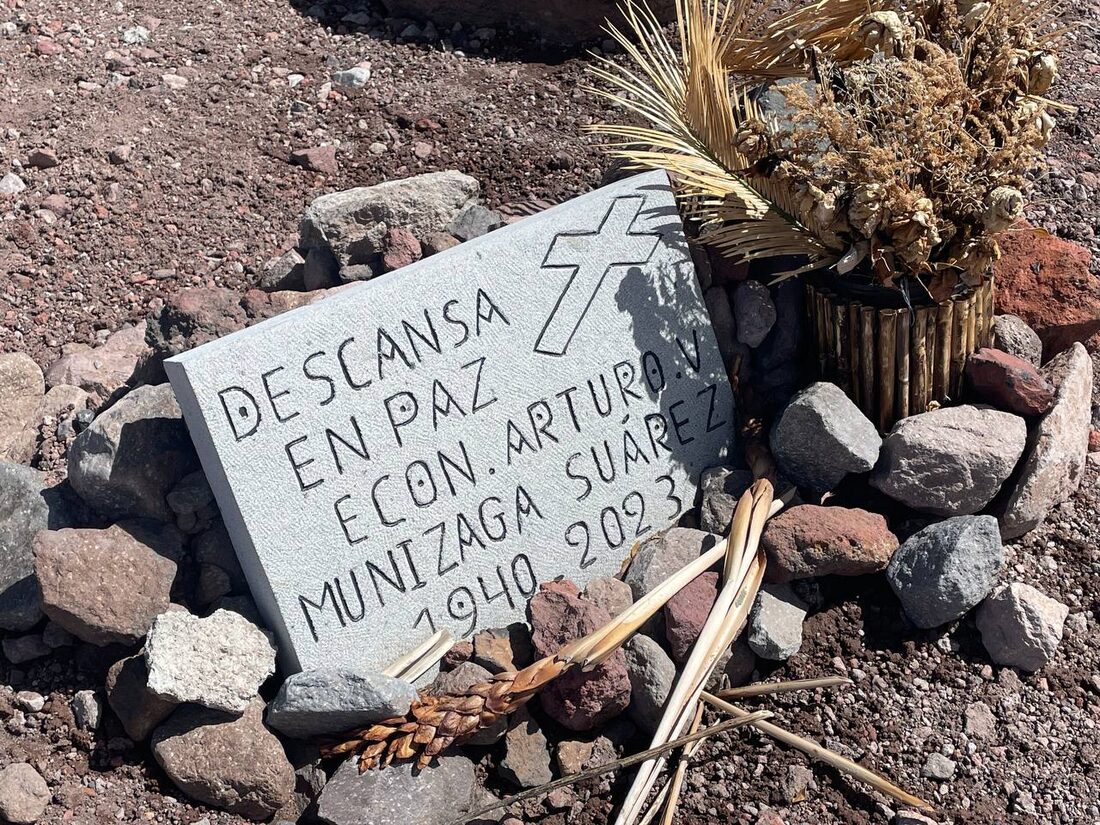 DESCANSA
EN PAZ
ECON. ARTURO.V
MUNIZAGA SUÁREZ
1940 2023